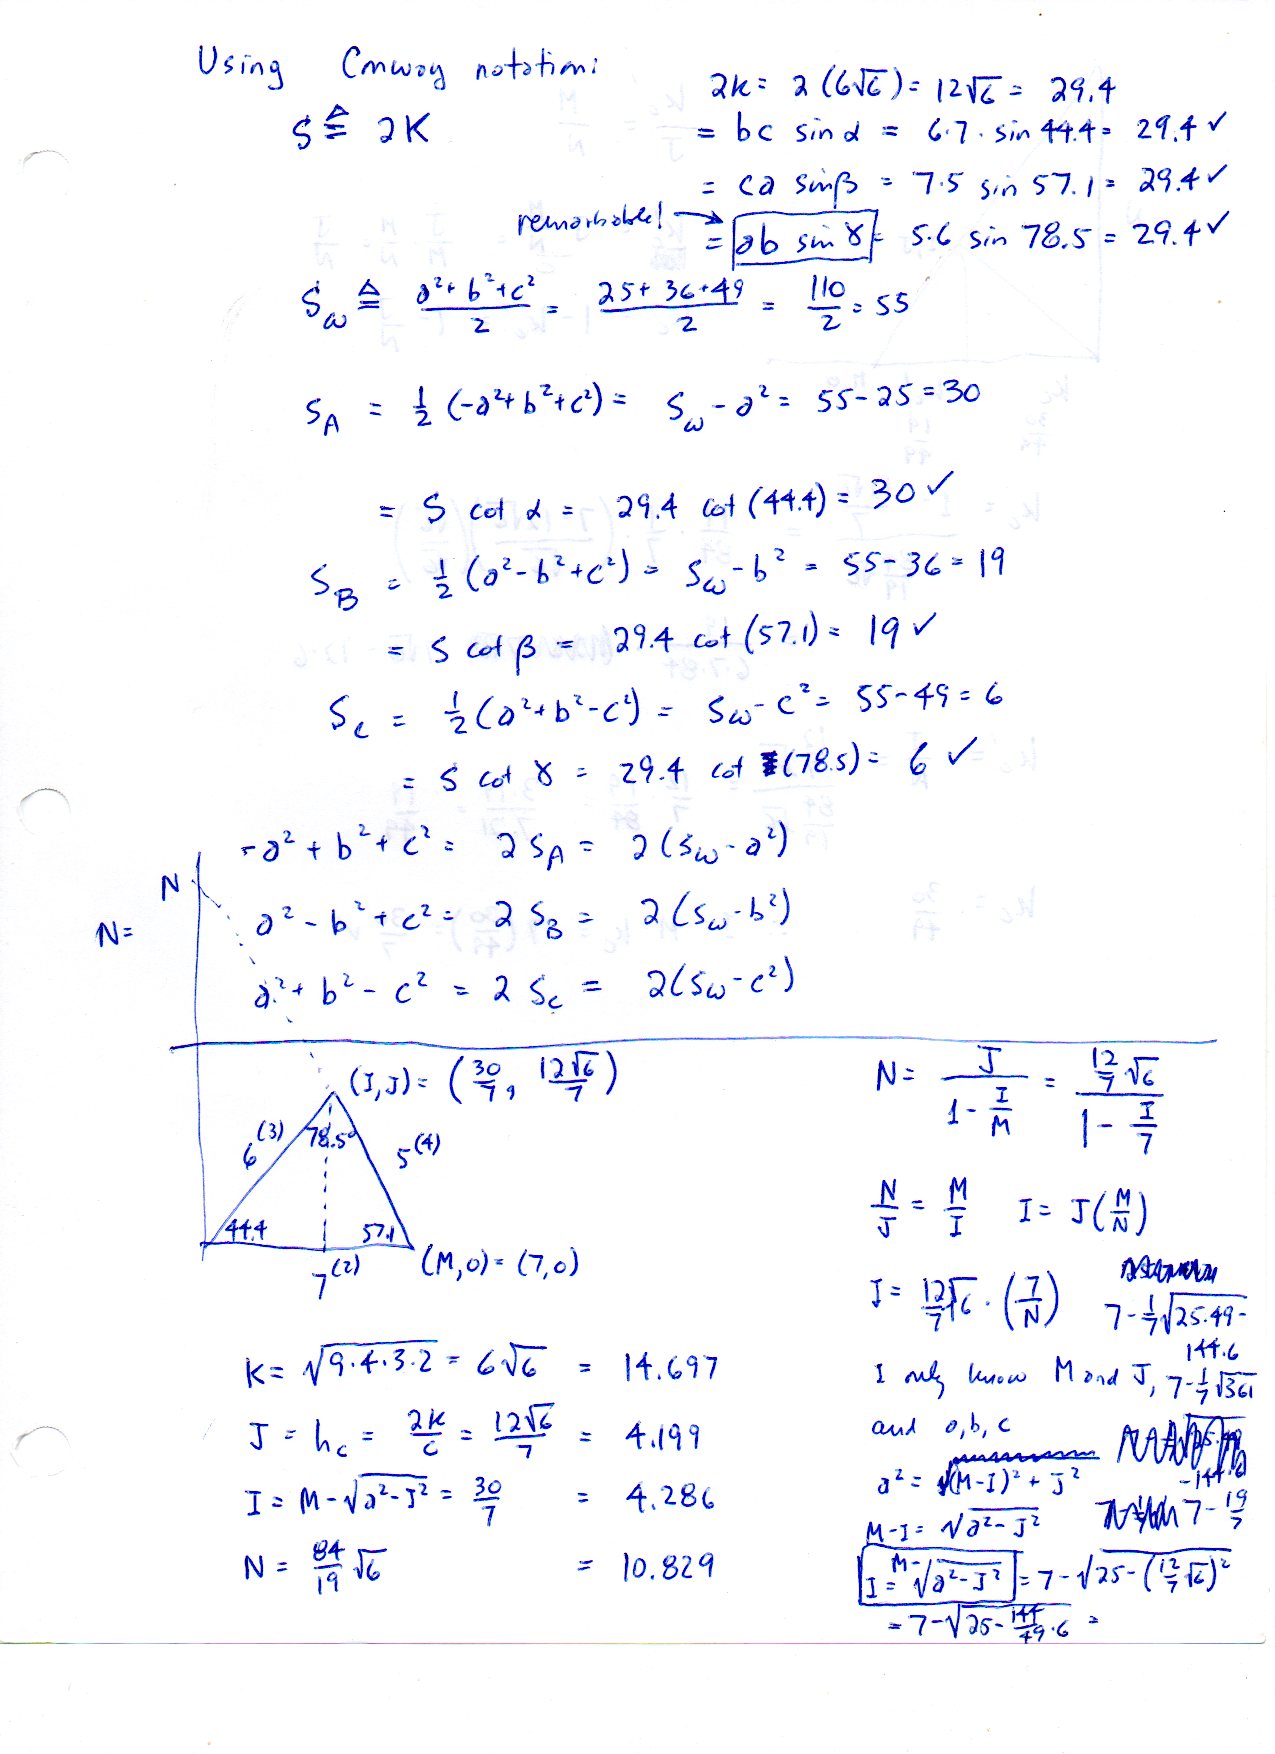 Using Conway notation:
S ≜ 2K
2K = 2 (6√6) = 12√6 = 29.4
= bc sin α = 6·7 · sin 44.4 = 29.4 ✓
= ca sin β = 7·5 sin 57.1 = 29.4 ✓
remarkable! → = ab sin γ = 5·6 sin 78.5 = 29.4 ✓
S_ω ≜ (a² + b² + c²)/2 = (25 + 36 + 49)/2 = 110/2 = 55
S_A = 1/2 (-a² + b² + c²) = S_ω - a² = 55 - 25 = 30
= S cot α = 29.4 cot (44.4) = 30 ✓
S_B = 1/2 (a² - b² + c²) = S_ω - b² = 55 - 36 = 19
= S cot β = 29.4 cot (57.1) = 19 ✓
S_C = 1/2 (a² + b² - c²) = S_ω - c² = 55 - 49 = 6
= S cot γ = 29.4 cot (78.5) = 6 ✓
-a² + b² + c² = 2 S_A = 2 (S_ω - a²)
N
a² - b² + c² = 2 S_B = 2 (S_ω - b²)
N =
a² + b² - c² = 2 S_C = 2 (S_ω - c²)
(I, J) = (30/7, 12√6/7)
78.5°
6 (3)
5 (4)
44.4
57.1
7 (2)
(M, 0) = (7, 0)
K = √(9·4·3·2) = 6√6 = 14.697
J = h_c = 2K/c = 12√6/7 = 4.199
I = M - √(a² - J²) = 30/7 = 4.286
N = 84/19 √6 = 10.829
N = J/(1 - I/M) = (12/7 √6)/(1 - I/7)
N/J = M/I I = J (M/N)
I = 12/7 √6 · (7/N)
7 - 1/7 √(25·49 -
144·6
I only know M and J, 7 - 1/7 √361
and a, b, c
a² = (M-I)² + J²
-144·6
M-I = √(a² - J²) 7 - 19/7
I = M - √(a² - J²) = 7 - √(25 - (12/7 √6)²)
= 7 - √(25 - 144/49 · 6) =